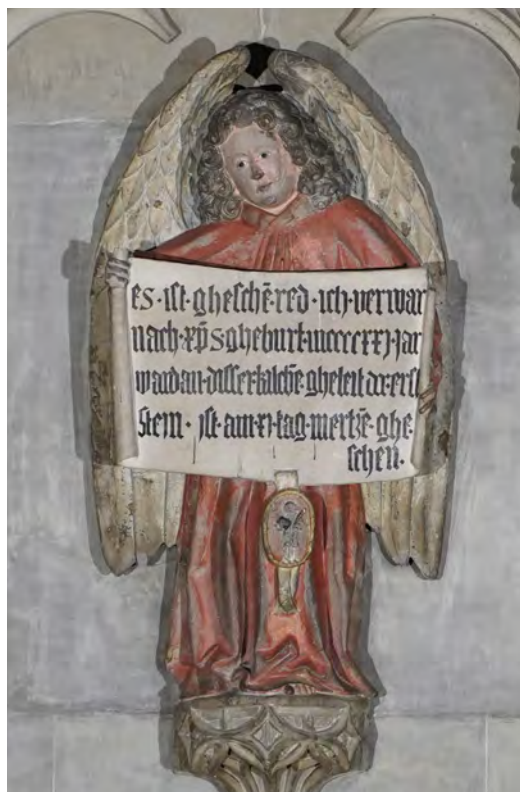 es · ist · gheschē · red · ich · verwar
nach · xp̄s gheburt · mccccxxj · jar
ward an · disser kilchē · gheleit der · erst
Stein · ist · am · xi · tag · mertzē · ghe·
schen ·